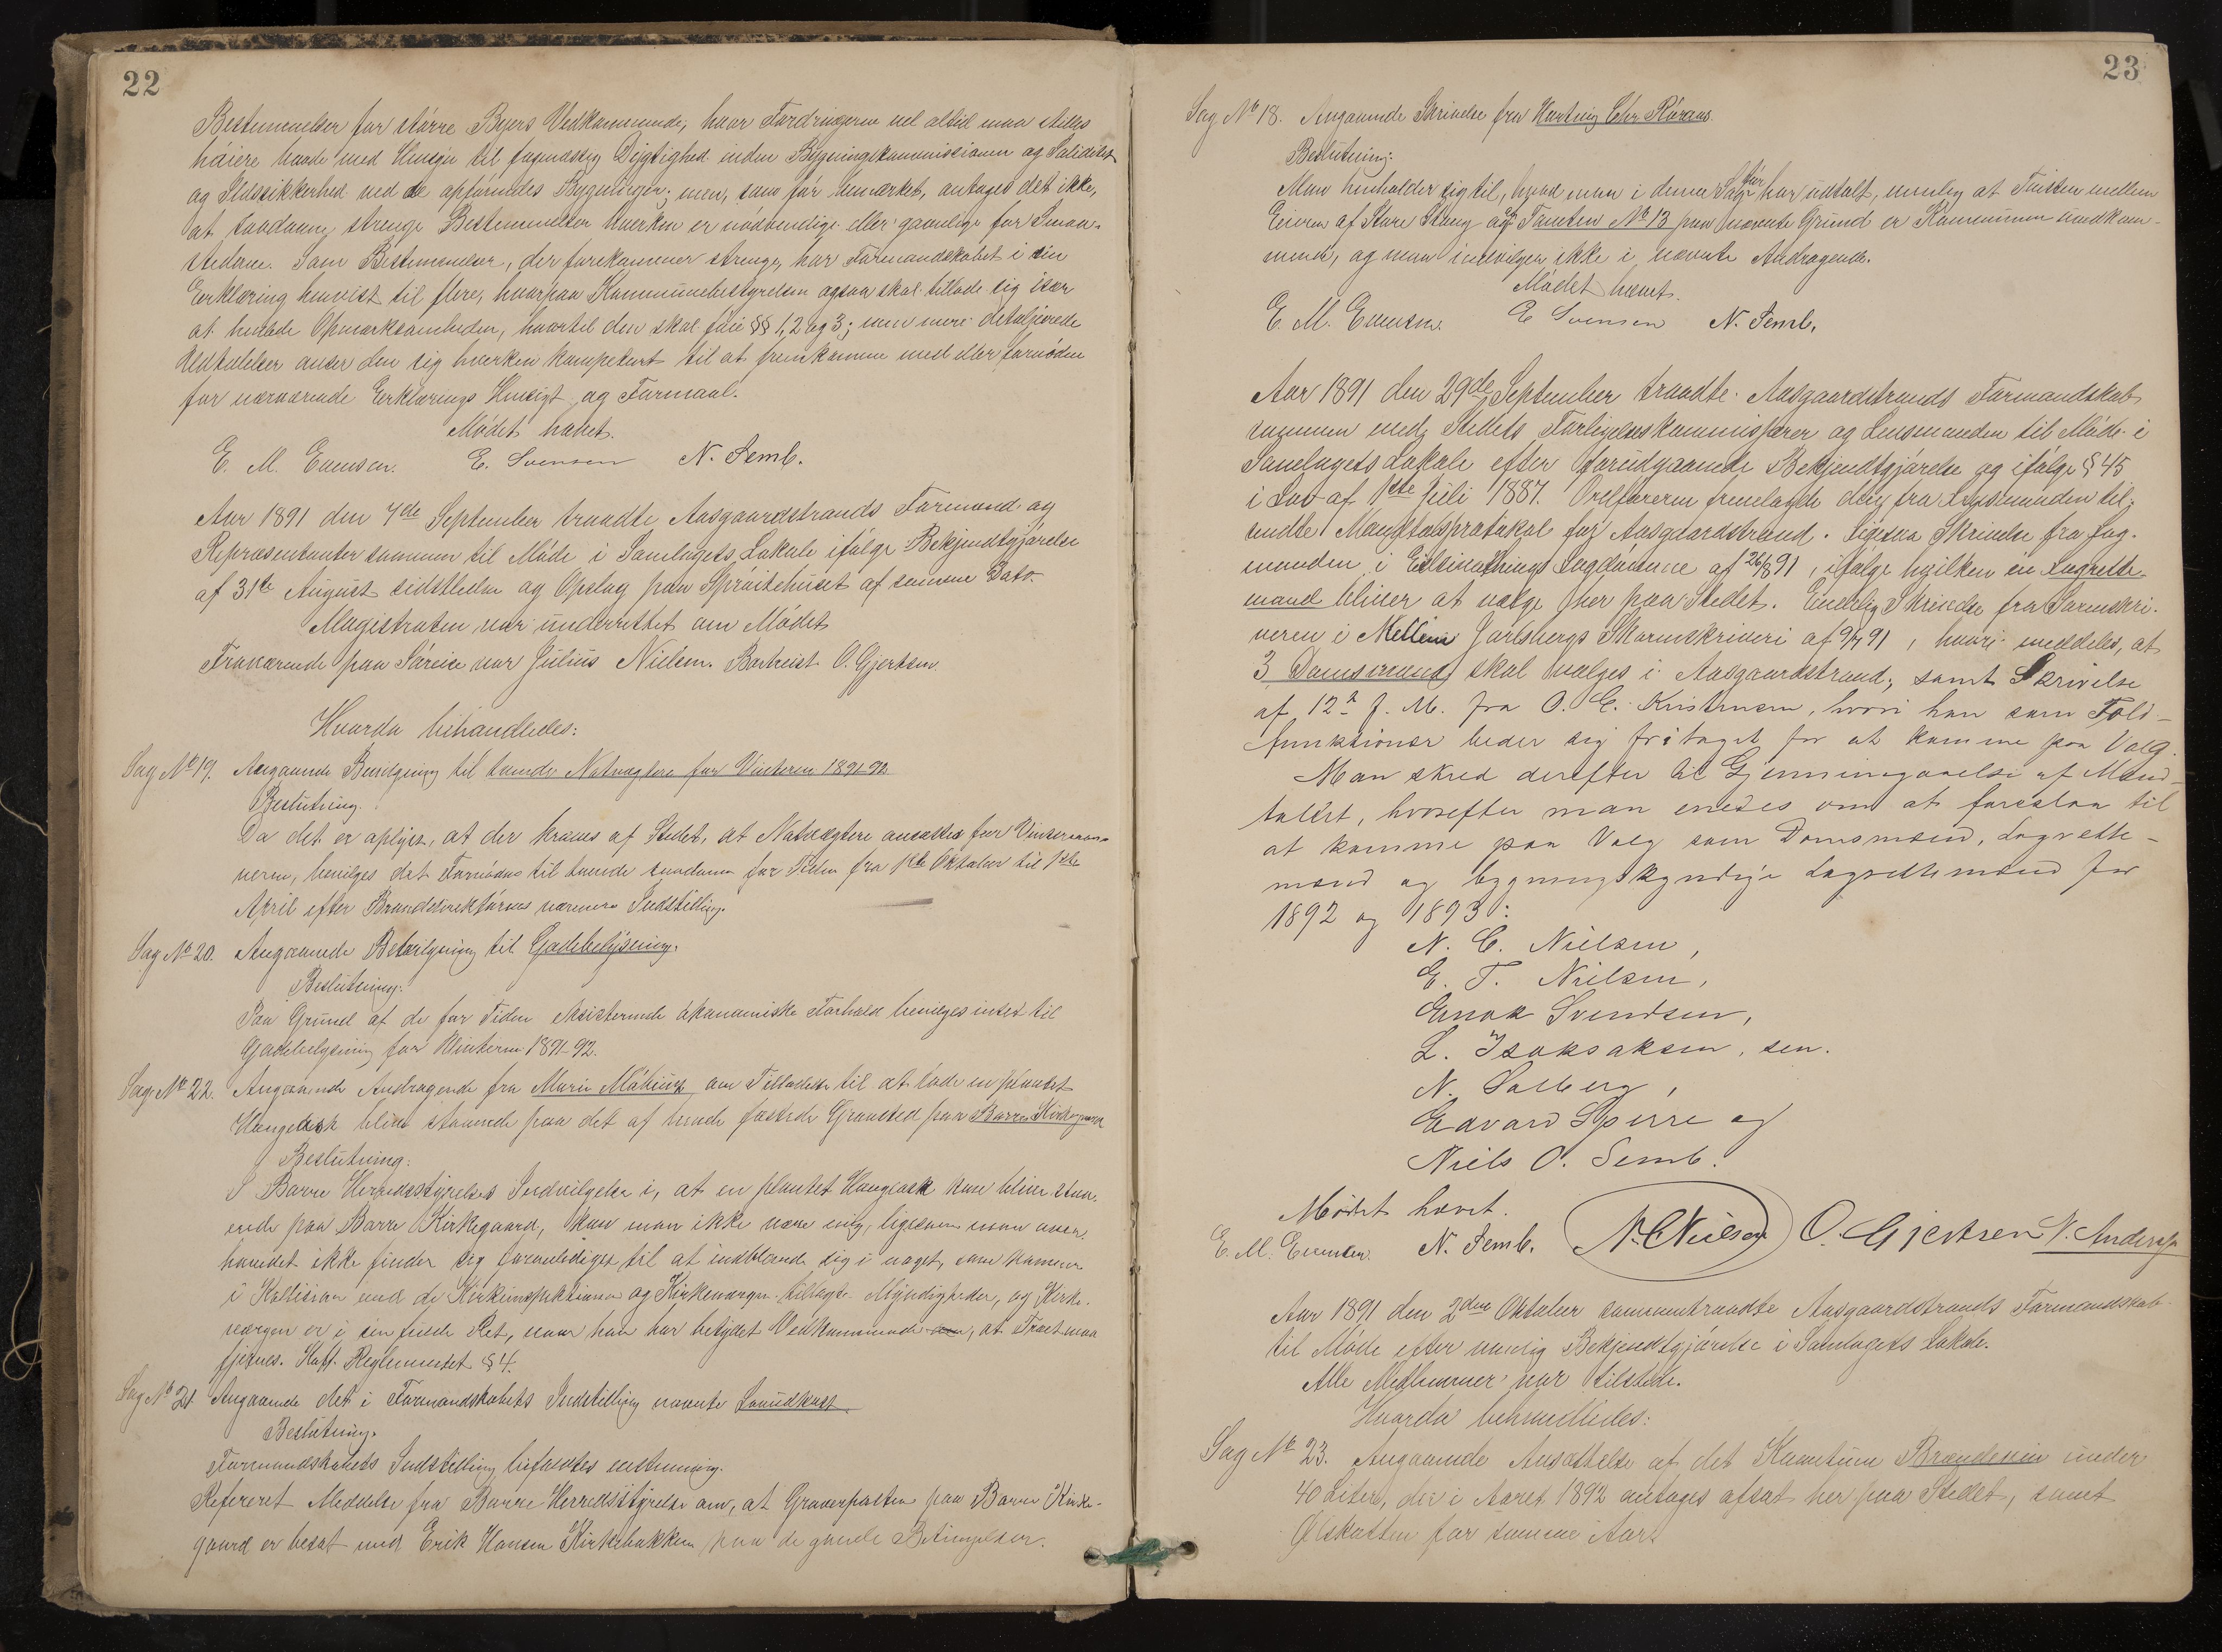 22
Bestemmelser for större Byers Vedkommende, hvor Fordringerne vel altid maa stilles
höiere baade med Hensyn til fagmæssig Dygtighed inden Bygningskommissionen og Soliditet
og Ildssikkerhed ved de opförendes Bygninger; men, som för bemærket, antages det ikke,
at saadanne strenge Bestemmelser hverken er nödvendige eller gavnlige for Smaa-
stederne. Som Bestemmelser, der forekommer strenge, har Formandskabet i sin
Erklæring henvist til flere, hvorpaa Kommunebestyrelsen ogsaa skal tillade sig især
at henlede Opmærksomheden, hvortil den skal föie §§ 1, 2 og 3; men mere detaljerede
Udtalelser anser den sig hverken kompetent til at fremkomme med eller fornöden
for nærværende Erklærings Hensigt og Formaal.
Mödet hævet.
E. M. Evensen. E. Svensen N. Semb.
Aar 1891 den 4de September traadte Aasgaardstrands Formænd og
Repræsentanter sammen til Möde i Samlagets Lokale ifölge Bekjendtgjörelse
af 31te August sidstleden og Opslag paa Spröitehuset af samme Dato.
Magistraten var underrettet om Mödet
Fraværende paa Söreise var Julius Nielsen. Bortreist O. Gjertsen.
Hvorda behandledes:
Sag No 19. Angaaende Bevilgning til tvende Natvægtere for Vinteren 1891-92.
Beslutning.
Da det er oplyst, at der kræves af Stedet, at Natvægtere ansættes for Vintermaa-
neren, bevilges det Fornödne til tvende saadanne for Tiden fra 1ste Oktober til 1ste
April efter Branddirektörens nærmere Indstilling.
Sag No 20. Angaaende Bevilgning til Gadebelysning.
Beslutning.
Paa Grund af de for Tiden eksisterende ökonomiske Forhold bevilges intet til
Gadebelysning for Vinteren 1891-92.
Sag No 22. Angaaende Andragende fra Marie Möbius om Tilladelse til at lade en plantet
Hængeask blive staaende paa det af hende fæstede Gravsted paa Borre Kirkegaard
Beslutning:
I Borre Herredsstyrelses Indvilgelse i, at en plantet Hængeask kan blive staa-
ende paa Borre Kirkegaard, kan man ikke være enig, ligesom man oven-
hovedet ikke finder sig foranlediget til at indblande sig i noget, som kommer
i Kollision med de Kirkeinspektionen og Kirkeværgen tillagte Myndigheder, og Kirke-
værgen er i sin fulde Ret, naar han har betydet Vedkommende, at Træet maa
fjernes. Kfr. Reglementet § 4.
Sag No 21. Angaaende det i Formandskabets Indstilling nævnte Lovudkast.
Beslutning.
Formandskabets Indstilling bifaldtes enstemmig.
Refereret Meddelse fra Borre Herredsstyrelse om, at Graverposten paa Borre Kirke-
gaard er besat med Erik Hansen Kirkebakken paa de givne Betingelser.
23
Sag No 18. Angaaende Skrivelse fra Hartvig Chr
Beslutning:
Man henholder sig til, hvad man i denne Sag för har udtalt, nemlig at Tvisten mellem
Eieren af Store Stang og Tomten No 13 paa nævnte Grund er Kommunen uvedkom-
mende, og man indvilger ikke i nævnte Andragende.
Mödet hævet.
E. M. Evensen. E Svensen N. Semb.
Aar 1891 den 29de September traadte Aasgaardstrands Formandskab
sammen med Stedets Forligelseskommissærer og Lensmanden til Möde i
Samlagets Lokale efter forudgaaende Bekjendtgjörelse og ifölge § 45
i Lov af 1ste Juli 1887. Ordföreren fremlagde den fra Lensmanden til-
sendte Mandtalsprotokol for Aasgaardstrand. Ligesaa Skrivelse fra Lag-
manden i Eidsivathings Lagdömme af 26/8 91, ifölge hvilken en Lagrette-
mand bliver at vælge her paa Stedet. Endelig Skrivelse fra Sorenskri-
veren i Mellem Jarlsbergs Sorenskriveri af 9/9 91, hvori meddeles, at
3 Domsmænd skal vælges i Aasgaardstrand; samt Skrivelse
af 12te f. M. fra O. C. Kristensen, hvori han som Told-
funktionær beder sig fritaget for at komme paa Valg.
Man skred derefter til Gjennemgaaelse af Mand-
tallet, hvorefter man enedes om at foreslaa til
at komme paa Valg som Domsmænd, Lagrette-
mænd og bygningskyndige Lagrettemænd for
1892 og 1893:
N. C. Nielsen,
E. T. Nielsen,
Enok Svendsen,
L. Isaksaksen, sen.
N. Solberg,
Edvard Spirre og
Niels O. Semb.
Mödet hævet.
E. M. Evensen. N. Semb. N. C. Nielsen O. Gjertsen N. Andersen
Aar 1891 den 2den Oktober sammentraadte Aasgaardstrands Formandskab
til Möde efter vanlig Bekjendtgjörelse i Samlagets Lokale.
Alle Medlemmer var tilstede.
Hvorda behandledes:
Sag No 23. Angaaende Ansættelse af det Kvantum Brændevin under
40 Liter, der i Aaret 1892 antages afsat her paa Stedet, samt
Ølskatten for samme Aar.